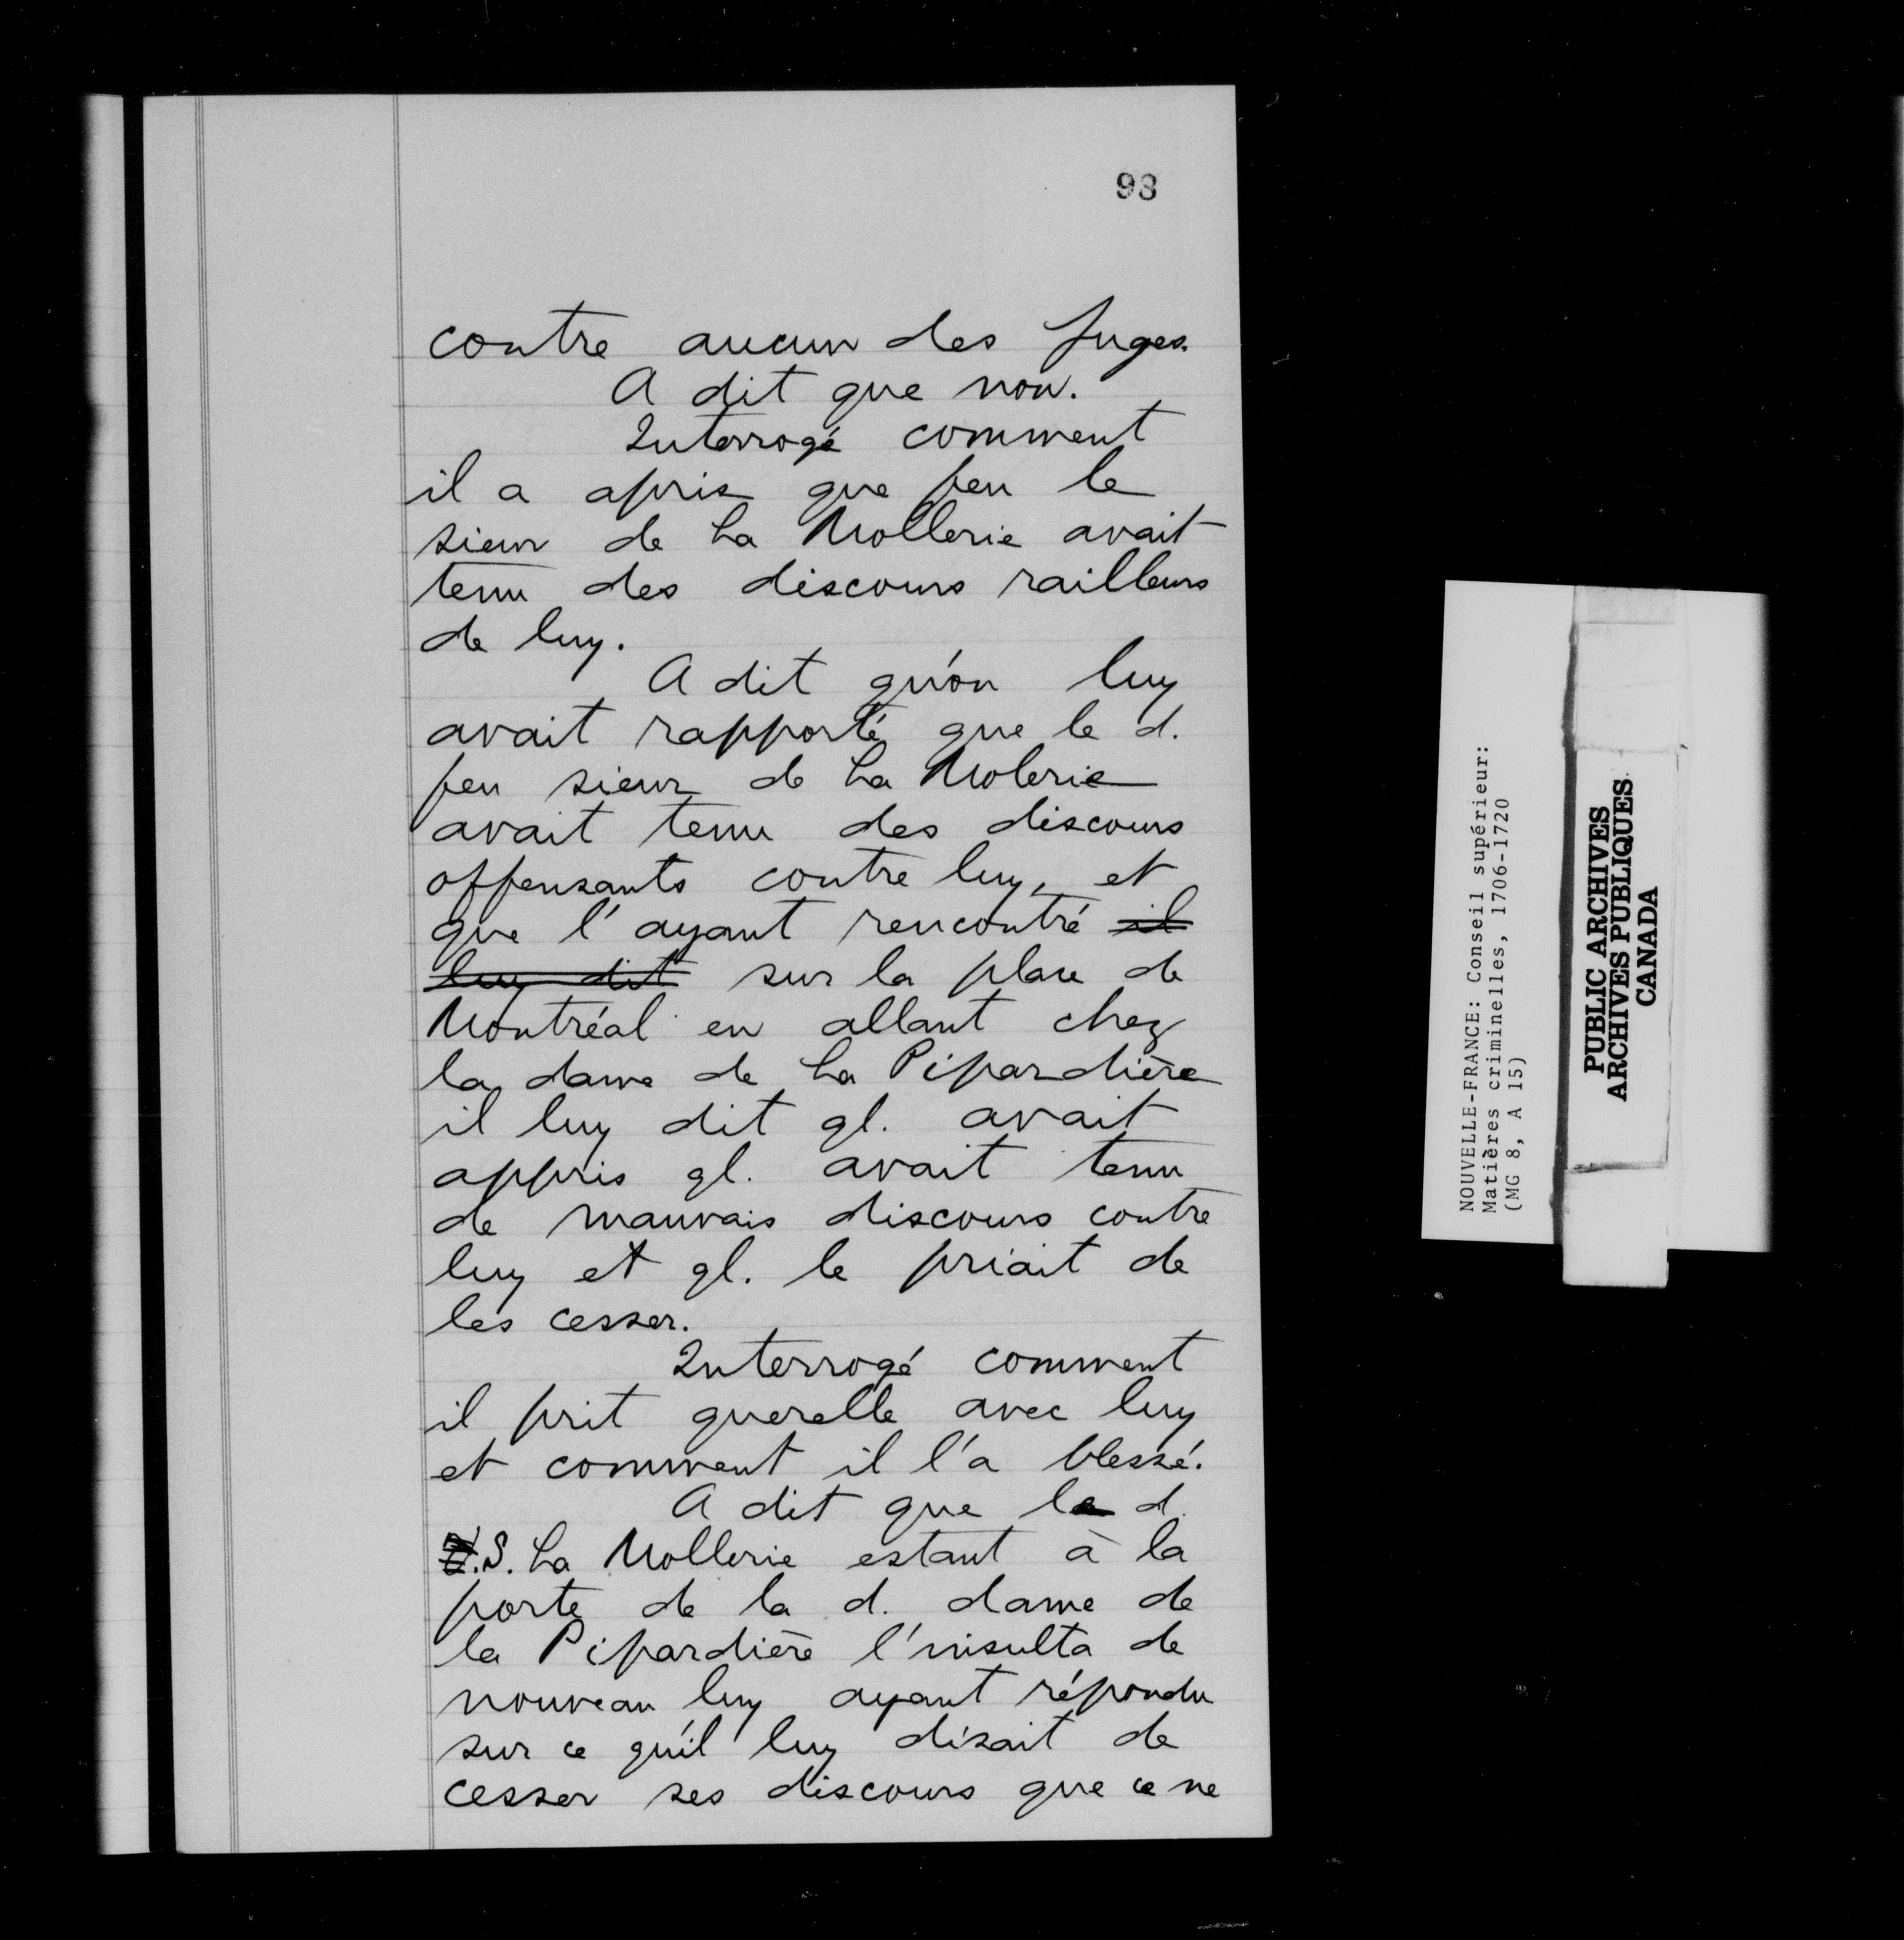 98
contre aucun des Juges.
A dit que non.
Interrogé comment
il a apris que feu le
sieur de La Mollerie avait
tenu des discours railleurs
de luy.
A dit qu'on luy
avait rapporté que le d.
feu sieur de La Molerie
avait tenu des discours
offensants contre luy, et
que l'ayant rencontré il
luy dit sur la place de
Montréal en allant chez
la dame de La Pipardière
il luy dit ql. avait
appris ql. avait tenu
de mauvais discours contre
luy et ql. le priait de
les cesser.
Interrogé comment
il prit querelle avec luy
et comment il l'a blessé.
A dit que le d.
S. La Mollerie estant à la
porte de la d. dame de
la Pipardière l'insulta de
nouveau luy ayant répondu
sur ce qu'il luy disait de
cesser ses discours que ce ne
NOUVELLE-FRANCE: Conseil supérieur:
Matières criminelles, 1706-1720
(MG 8, A 15)
PUBLIC ARCHIVES
ARCHIVES PUBLIQUES
CANADA